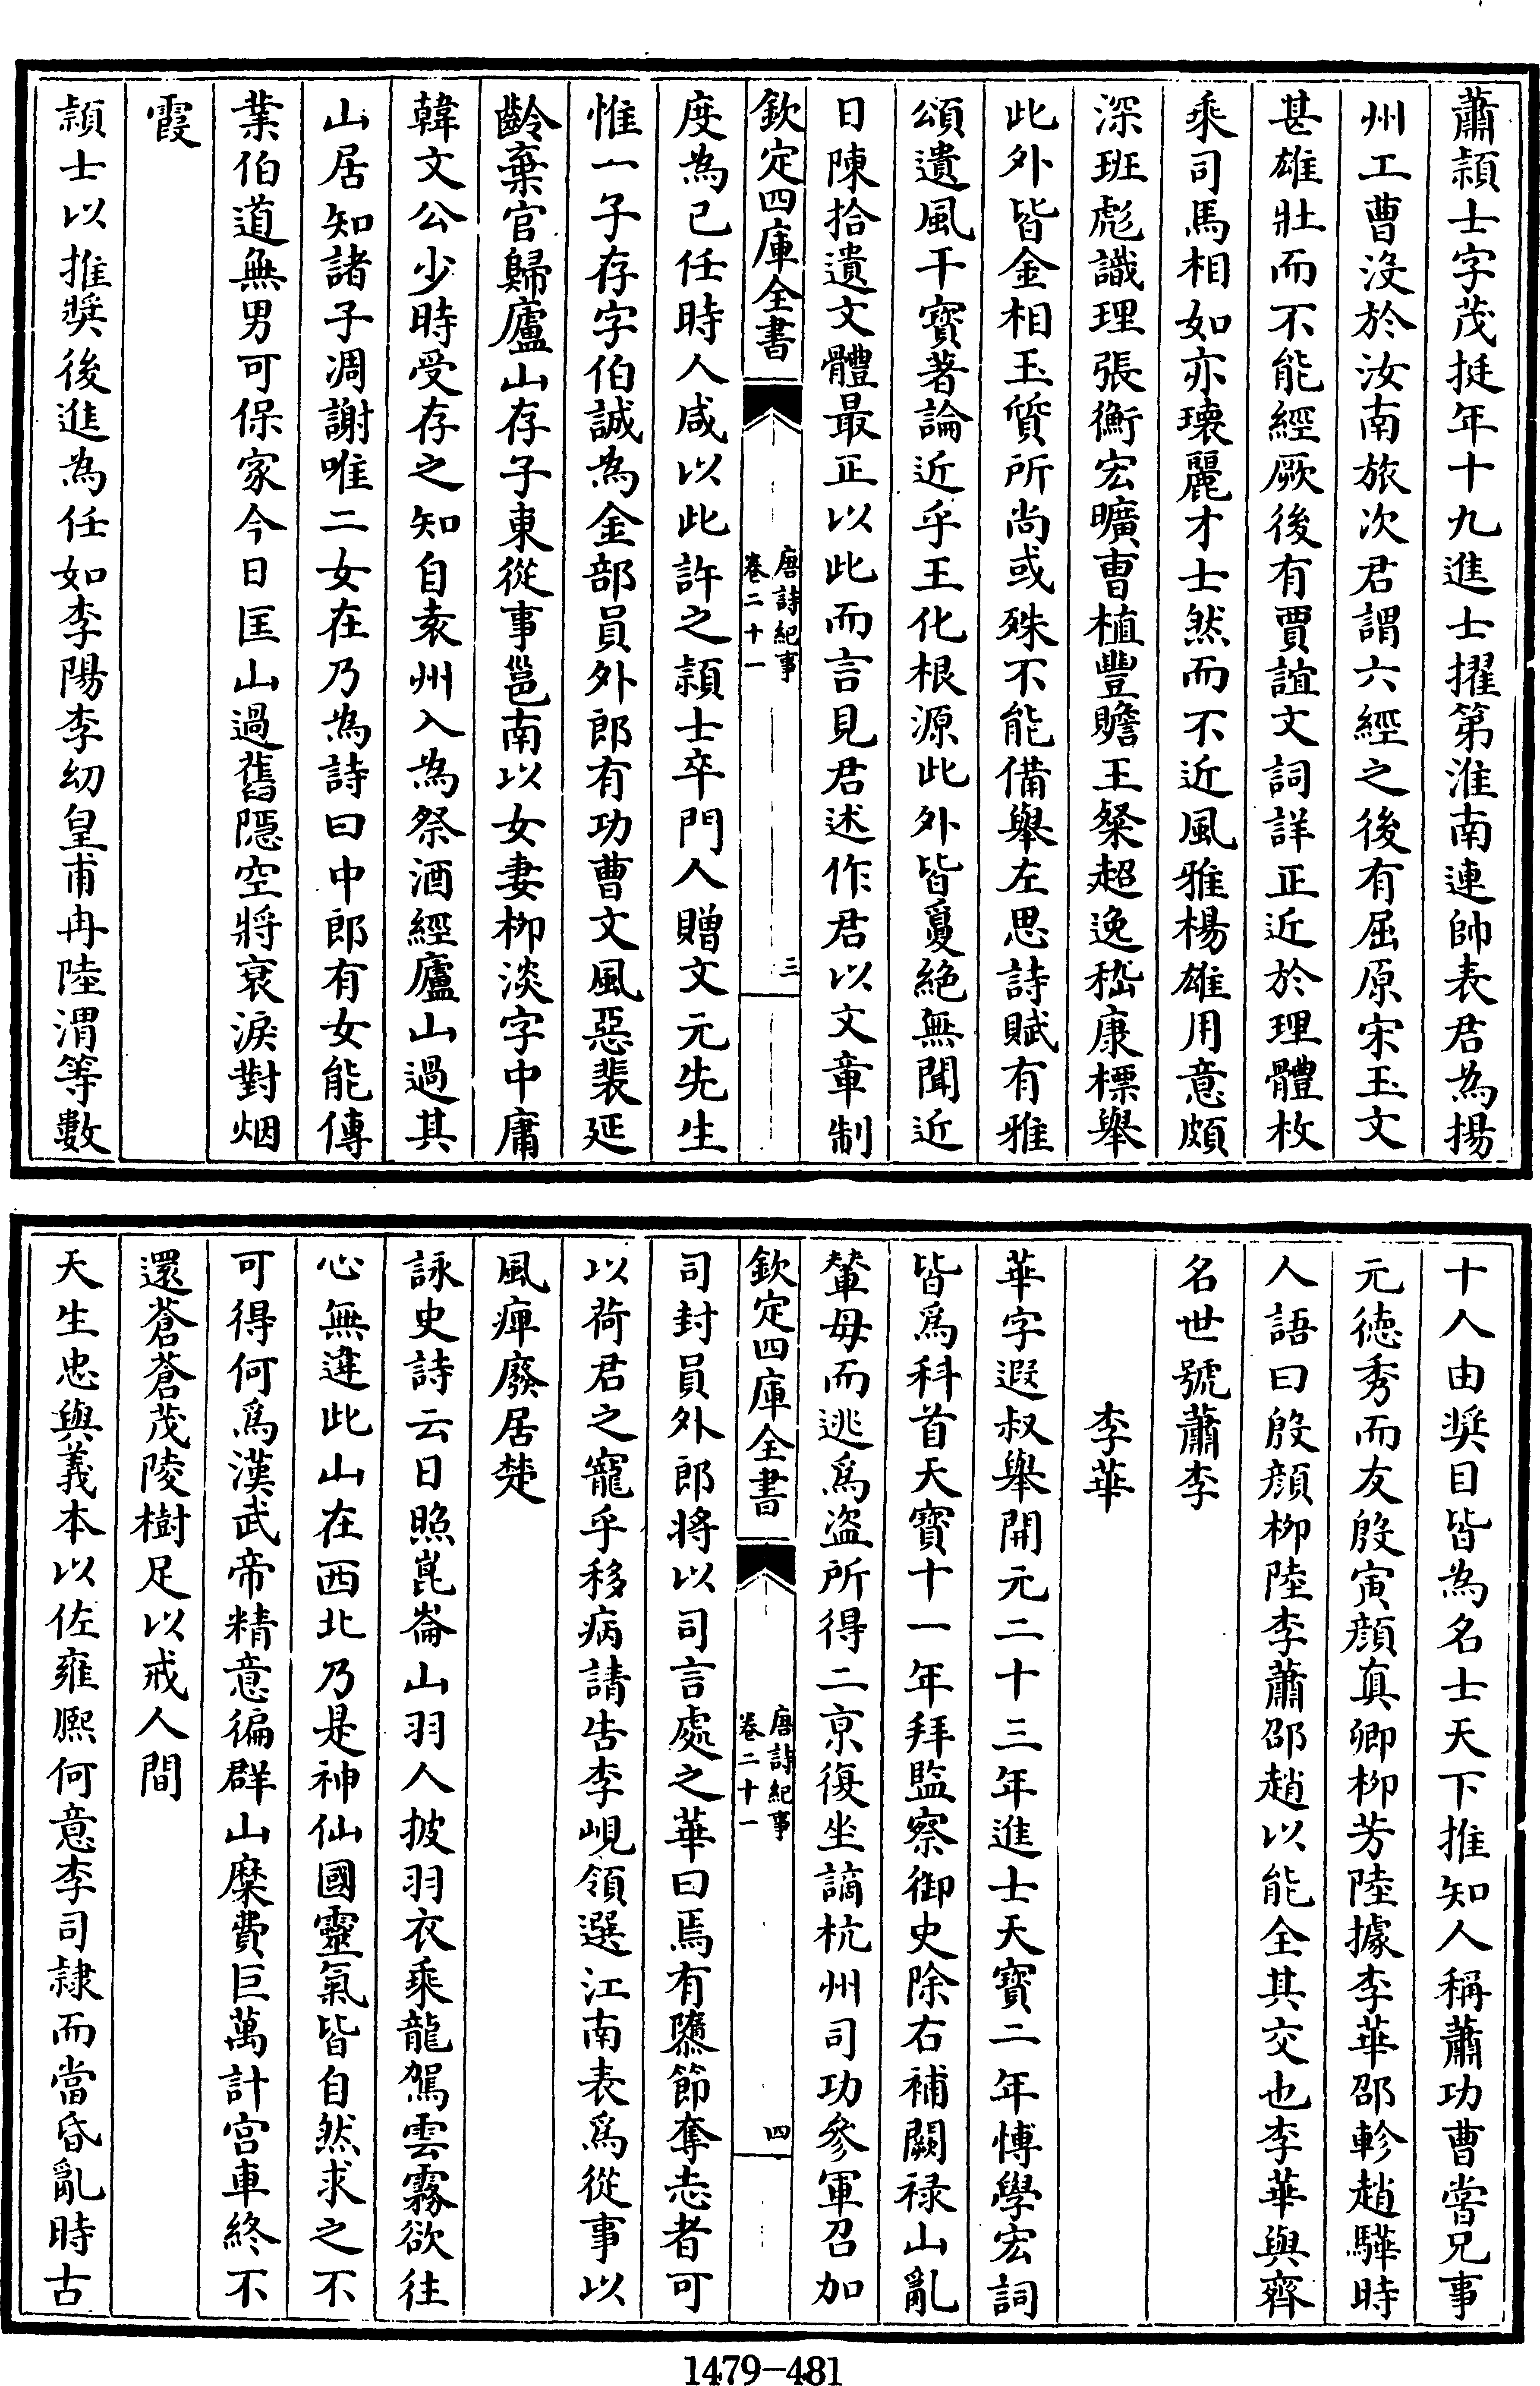 蕭頴士字茂挺年十九進士擢第淮南連帥表君為揚
州工曹沒於汝南旅次君謂六經之後有屈原宋玉文
甚雄壯而不能經厥後有賈誼文詞詳正近於理體枚
乘司馬相如亦瓌麗才士然而不近風雅楊雄用意頗
深班彪識理張衡宏曠曹植豐贍王粲超逸嵇康標舉
此外皆金相玉質所尚或殊不能備舉左思詩賦有雅
頌遺風干寶著論近乎王化根源此外皆夐絶無聞近
日陳拾遺文體最正以此而言見君述作君以文章制
欽定四庫全書
唐詩紀事
卷二十一
三
度為已任時人咸以此許之頴士卒門人贈文元先生
惟一子存字伯誠為金部員外郎有功曹文風惡裴延
齡棄官歸廬山存子東從事邕南以女妻柳淡字中庸
韓文公少時受存之知自袁州入為祭酒經廬山過其
山居知諸子凋謝唯二女在乃為詩曰中郎有女能傳
業伯道無男可保家今日匡山過舊隱空將衰淚對烟
霞
頴士以推奬後進為任如李陽李幼皇甫冉陸渭等數
十人由奬目皆為名士天下推知人稱蕭功曹嘗兄事
元德秀而友殷寅顏真卿柳芳陸據李華邵軫趙驊時
人語曰殷顏柳陸李蕭邵趙以能全其交也李華與齊
名世號蕭李
李華
華字遐叔舉開元二十三年進士天寶二年博學宏詞
皆爲科首天寶十一年拜監察御史除右補闕禄山亂
輦母而逃爲盜所得二京復坐謫杭州司功參軍召加
欽定四庫全書
唐詩紀事
卷二十一
四
司封員外郎將以司言處之華曰焉有隳節奪志者可
以荷君之寵乎移病請告李峴領選江南表爲從事以
風痺廢居楚
詠史詩云日照崑崙山羽人披羽衣乘龍駕雲霧欲往
心無違此山在西北乃是神仙國靈氣皆自然求之不
可得何爲漢武帝精意徧群山糜費巨萬計宫車終不
還蒼蒼茂陵樹足以戒人間
天生忠與義本以佐雍熈何意李司隷而當昏亂時古
1479-481